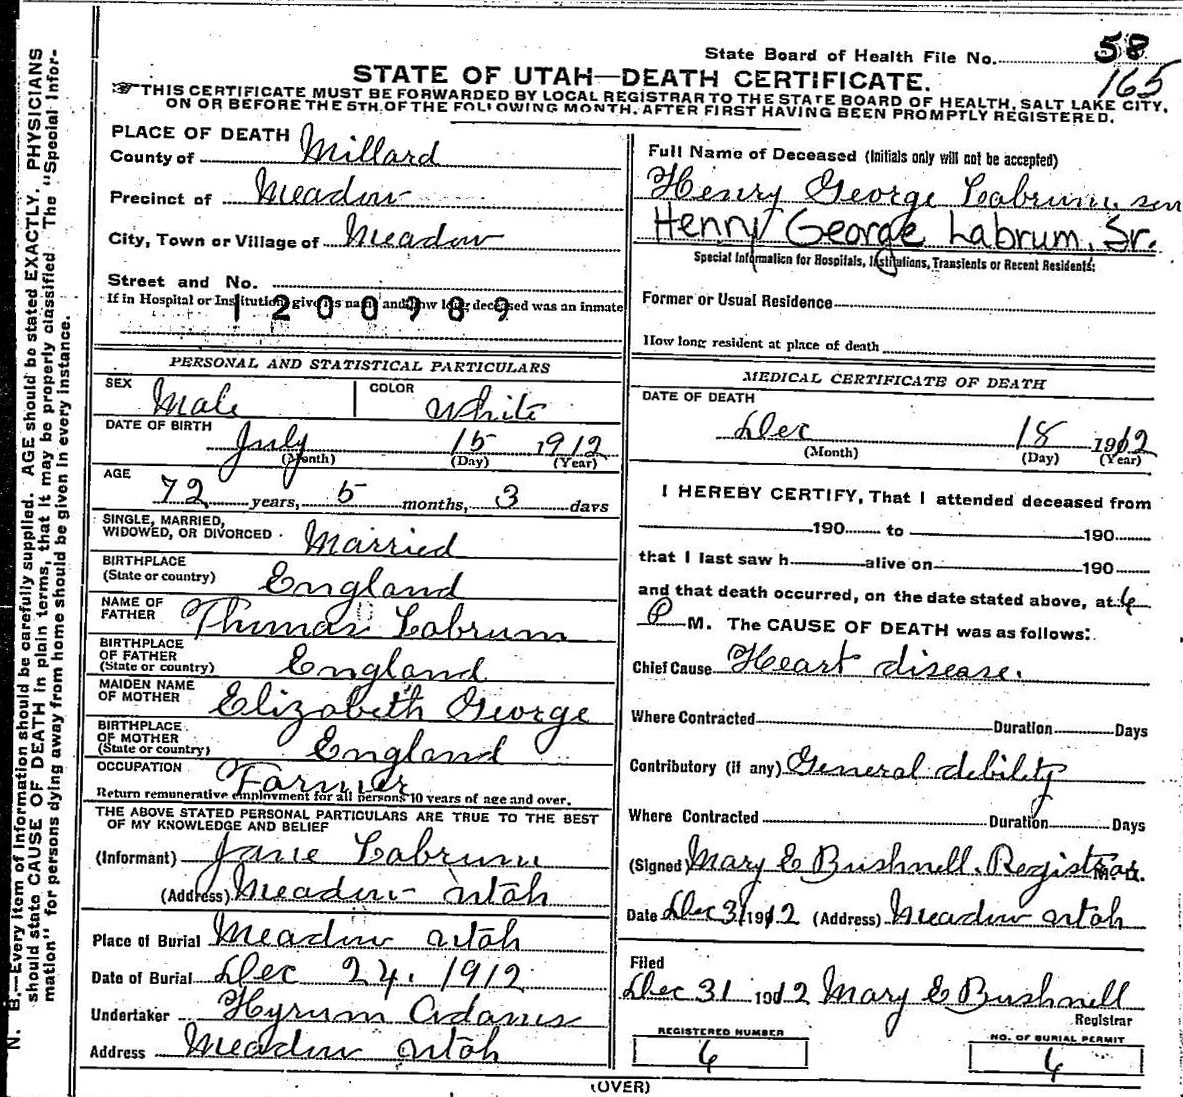 State Board of Health File No. 58
165
STATE OF UTAH—DEATH CERTIFICATE.
☞THIS CERTIFICATE MUST BE FORWARDED BY LOCAL REGISTRAR TO THE STATE BOARD OF HEALTH, SALT LAKE CITY,
ON OR BEFORE THE 5TH OF THE FOLLOWING MONTH, AFTER FIRST HAVING BEEN PROMPTLY REGISTERED.
PLACE OF DEATH
County of Millard
Precinct of Meadow
City, Town or Village of Meadow
Street and No.
If in Hospital or Institution, give its name and how long deceased was an inmate
1200989
PERSONAL AND STATISTICAL PARTICULARS
SEX Male COLOR White
DATE OF BIRTH July 15 1912
(Month) (Day) (Year)
AGE 72 years, 5 months, 3 days
SINGLE, MARRIED,
WIDOWED, OR DIVORCED Married
BIRTHPLACE
(State or country) England
NAME OF
FATHER Thomas Labrum
BIRTHPLACE
OF FATHER
(State or country) England
MAIDEN NAME
OF MOTHER Elizabeth George
BIRTHPLACE
OF MOTHER
(State or country) England
OCCUPATION Farmer
Return remunerative employment for all persons 10 years of age and over.
THE ABOVE STATED PERSONAL PARTICULARS ARE TRUE TO THE BEST
OF MY KNOWLEDGE AND BELIEF
(Informant) Jane Labrum
(Address) Meadow Utah
Place of Burial Meadow Utah
Date of Burial Dec 24. 1912
Undertaker Hyrum Adams
Address Meadow Utah
Full Name of Deceased (Initials only will not be accepted)
Henry George Labrum sen
Henry George Labrum, Sr.
Special Information for Hospitals, Institutions, Transients or Recent Residents:
Former or Usual Residence
How long resident at place of death
MEDICAL CERTIFICATE OF DEATH
DATE OF DEATH
Dec 18 1912
(Month) (Day) (Year)
I HEREBY CERTIFY, That I attended deceased from
190 to 190
that I last saw h alive on 190
and that death occurred, on the date stated above, at 6
P M. The CAUSE OF DEATH was as follows:
Chief Cause Heart disease.
Where Contracted Duration Days
Contributory (if any) General debility
Where Contracted Duration Days
(Signed) Mary E Bushnell. Registrar M. D.
Date Dec 31 1912 (Address) Meadow Utah
Filed
Dec 31 1912 Mary E Bushnell
Registrar
REGISTERED NUMBER
6
NO. OF BURIAL PERMIT
6
(OVER)
N. B.—Every item of information should be carefully supplied. AGE should be stated EXACTLY. PHYSICIANS
should state CAUSE OF DEATH in plain terms, that it may be properly classified. The "Special Infor-
mation" for persons dying away from home should be given in every instance.